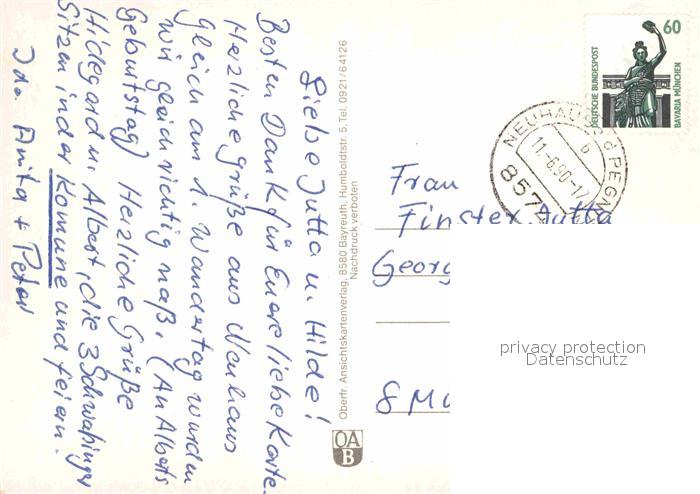 Liebe Jutta u. Hilde!
Besten Dank für Eure liebe Karte.
Herzliche Grüße aus Neuhaus
Gleich am 1. Wandertag wurden
wir gleich richtig naß. (An Alberts
Geburtstag) Herzliche Grüße
Hildegard u. Albert, die 3 Schwabinger
Sitzen in der Komune und feiern.
Ida Anita + Peter
Oberfr. Ansichtskartenverlag, 8580 Bayreuth, Humboldtstr. 5, Tel. 0921/64126
Nachdruck verboten
OA
B
60
DEUTSCHE BUNDESPOST
BAVARIA MÜNCHEN
NEUHAUS a d PEGN
b
11.-6.90-17
857
Frau
Finster Jutta
Georg
8 Mü
privacy protection
Datenschutz